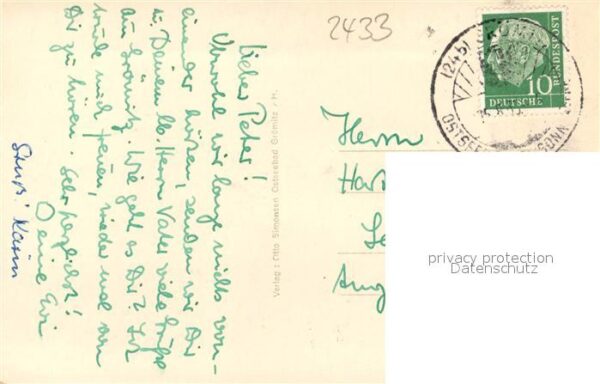 2433
Lieber Peter!
Obwohl wir lange nichts von-
einander hörten, senden wir Dir
u. Deinem lb. Herrn Vater viele Grüße
aus Grömitz. Wie geht es Dir? Ich
würde mich freuen, wieder mal von
Dir zu hören. Sehr herzlichst!
Deine Evi
Gruß! Karin
Verlag: Otto Simonsen Ostseebad Grömitz / H.
Herrn
(24b)
OSTSEE
10
DEUTSCHE
BUNDESPOST
privacy protection
Datenschutz